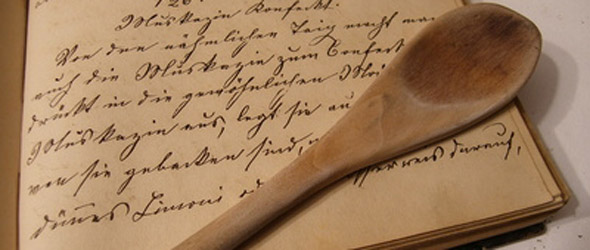 126.
Muskazin Konfeckt.
Von den nähmlichen Teig macht man
auch die Muskazin zum Confect
drückt in die gewöhnlichen
Muskazin aus, legt sie au
wen sie gebacken sind,
dünes Limoni darauf,